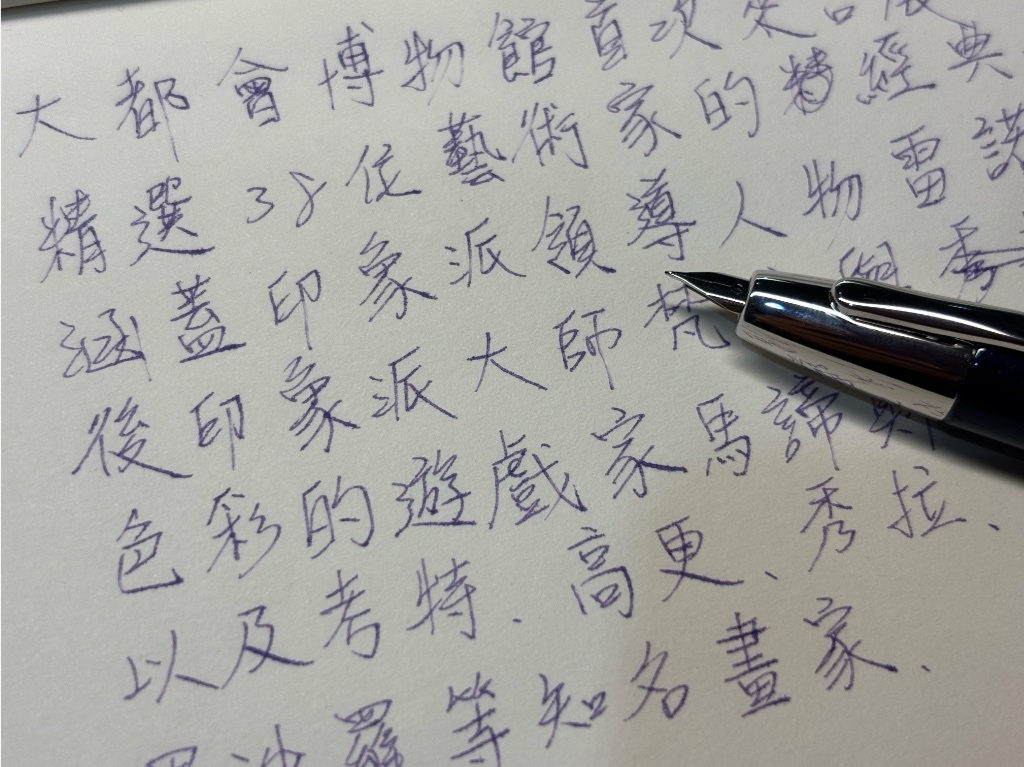 大都會博物館首次來台展
精選38位藝術家的精經典
涵蓋印象派領導人物雷諾
後印象派大師梵 與秀
色彩的遊戲家馬諦斯
以及考特、高更、秀拉、
畢沙羅等知名畫家、